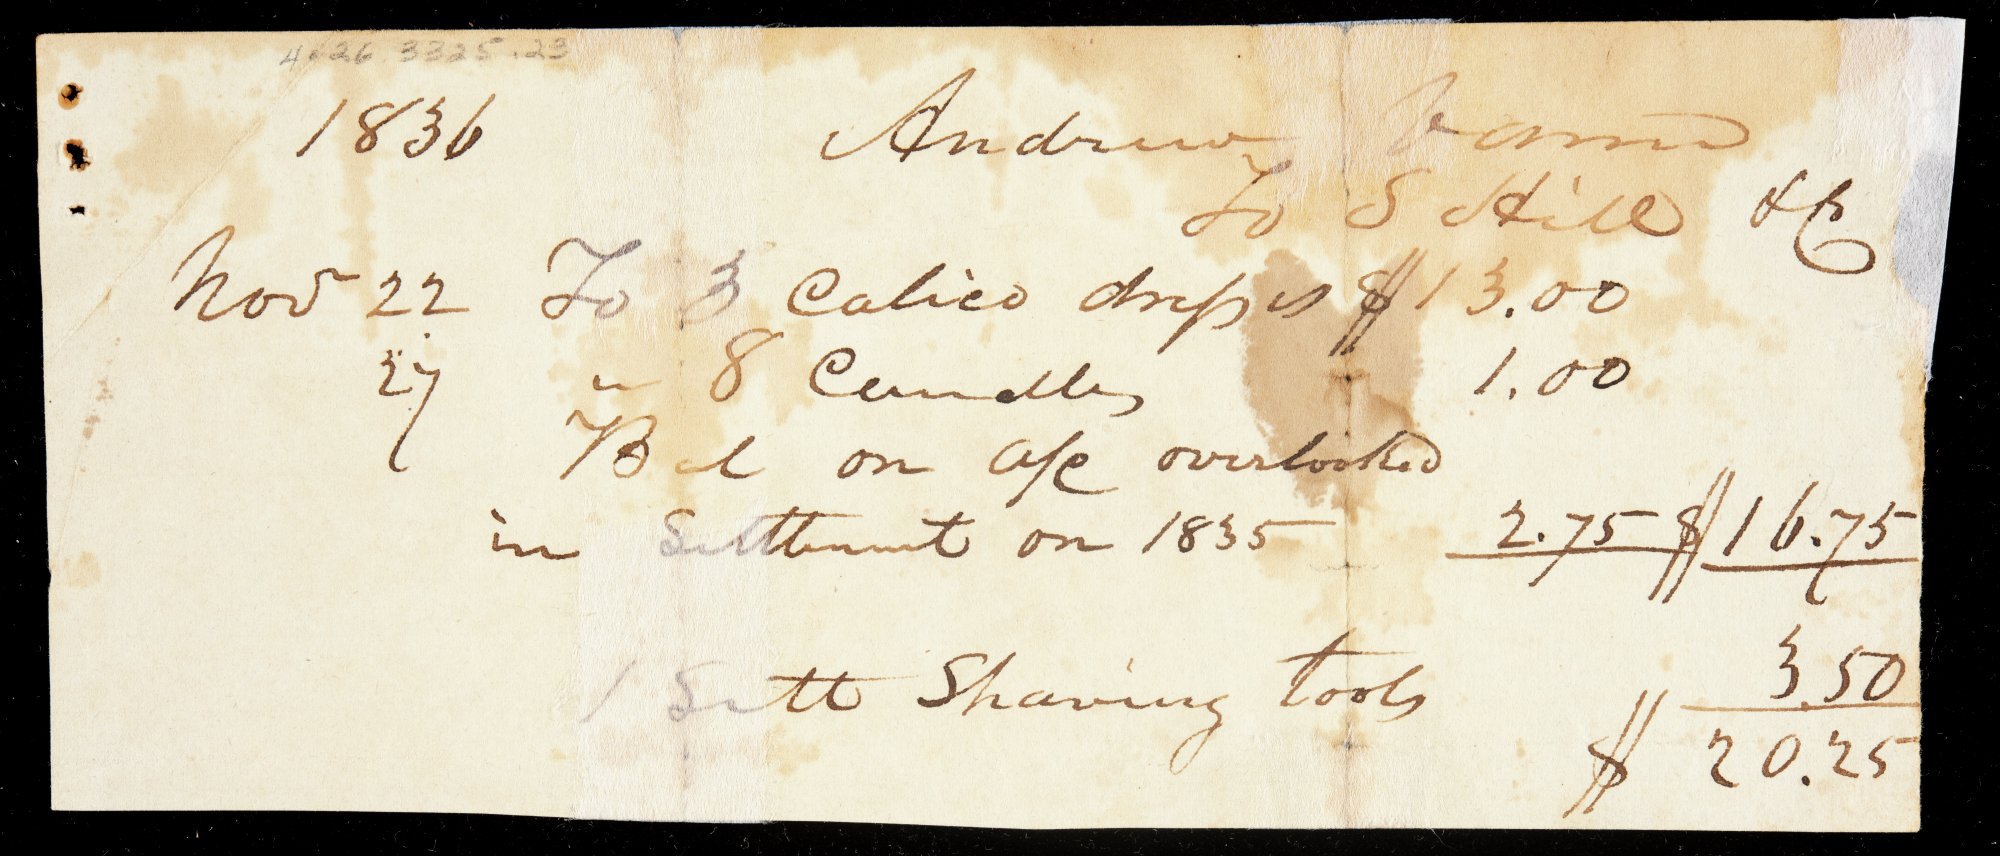 4026.3325.23
1836 Andrew Vann
To S Hill & Co
Nov 22 To 3 Calico dresses $13.00
27 " 8 Candles 1.00
Bal on a/c overlooked
in Settlement on 1835 2.75 $16.75
1 Sett Shaving tools 3.50
$ 20.25